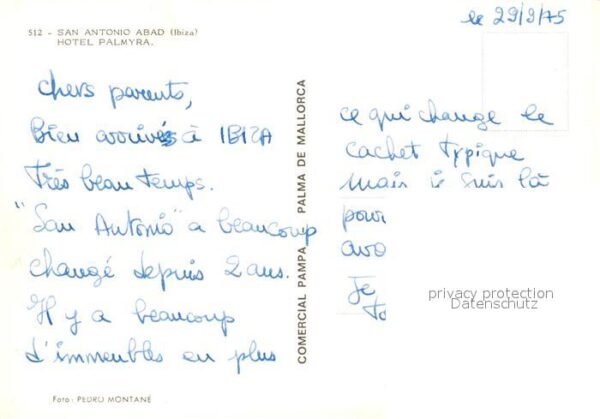 512 - SAN ANTONIO ABAD (Ibiza)
HOTEL PALMYRA.
le 29/9/75
Chers parents,
Bien arrivés à IBIZA
Très beau temps.
"San Antonio" a beaucoup
changé depuis 2 ans.
Il y a beaucoup
d'immeubles en plus
Foto - PEDRO MONTANÉ
COMERCIAL PAMPA PALMA DE MALLORCA
ce qui change le
cachet typique
mais je suis là
pour
avo
Je
To
privacy protection
Datenschutz